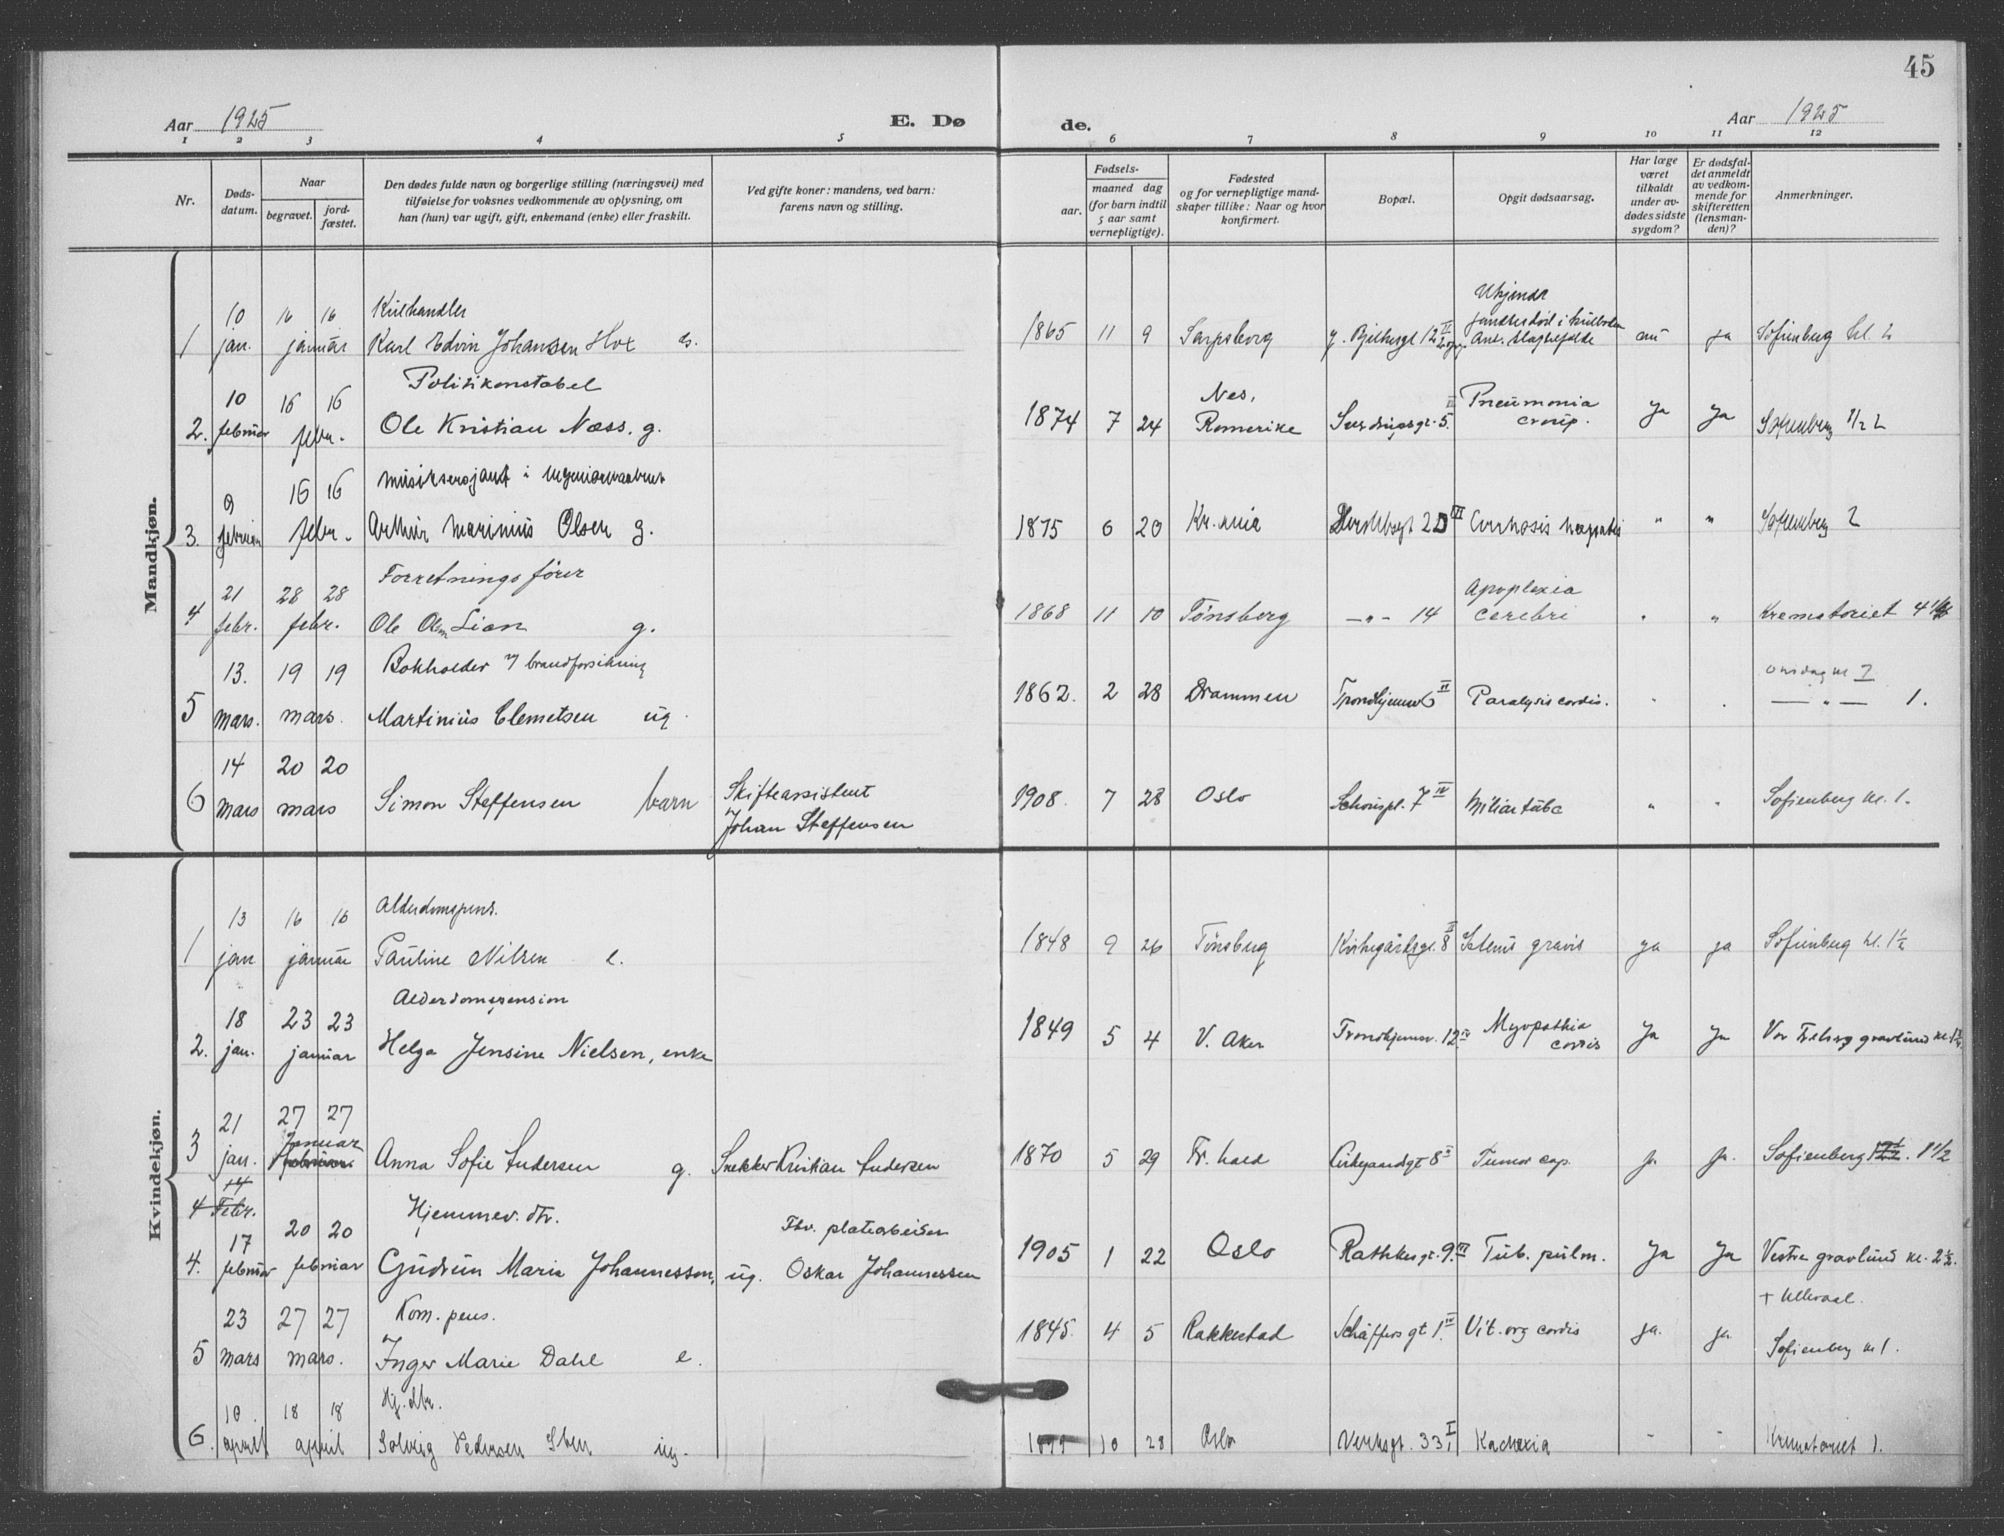 45
Aar 1925 E. Dø de. Aar 1925
1 2 3 4 5 6 7 8 9 10 11 12
Nr.
Døds-
datum.
Naar
begravet.
jord-
fæstet.
Den dødes fulde navn og borgerlige stilling (næringsvei) med
tilføielse for voksnes vedkommende av oplysning, om
han (hun) var ugift, gift, enkemand (enke) eller fraskilt.
Ved gifte koner: mandens, ved barn:
farens navn og stilling.
Fødsels-
aar.
maaned dag
(for barn indtil
5 aar samt
vernepligtige).
Fødested
og for vernepligtige mand-
skaper tillike: Naar og hvor
konfirmert.
Bopæl.
Opgit dødsaarsag.
Har læge
været
tilkaldt
under av-
dødes sidste
sygdom?
Er dødsfal-
det anmeldt
av vedkom-
mende for
skifteretten
(lensman-
den)?
Anmerkninger.
Mandkjøn.
10 16 16 Kulhandler
1 jan. januar Karl Edvin Johansen 1865 11 9 Sarpsborg ja Sofienberg kl. 2
Politikonstabel
10 16 16 Nes, Pneumonia
2. februar febr. Ole Kristian Næss. g. 1874 7 24 Romerike 5. croup. Ja Ja Sofienberg 1/2 2
9 16 16 musiksersjant i
3. februar febr. Arthur Marinius Olsen g. 1875 6 20 Kr.ania 20 VI " " Sofienberg 2
21 28 28 Forretningsfører Apoplexia
4 febr. febr. Ole Olsen Lian g. 1868 11 10 Tønsberg —"— 14 cerebri " " Krematoriet
13. 19 19 Bokholder brandforsikring
onsdag kl
5 mars. mars. Martinius Clemetsen ug. 1862. 2 28 Drammen II Paralysis cordis. — " — 1.
14 20 20 Skifteassistent
6 mars mars Simon Steffensen barn Johan Steffensen 1908. 7 28 Oslo Schouspl. 7 IV Miliar tubc " " Sofienberg kl. 1.
Kvindekjøn.
13 16 16 Alderdomspens.
1 jan januar Pauline Nilsen e. 1848 9 26 Tønsberg Kirkegårdsgt. 8 II gravis ja ja Sofienberg kl. 1 1/2
Alderdomspension
18 23 23 Myopathia
2. jan. januar Helga Jensine Nielsen, enke 1849 5 4 V. Aker Trondhjemsv. 12 IV cordis Ja Ja Vor Frelsers gravlund kl.
21 27 27
3 jan. Januar Anna Sofie g. Snekker Kristian 1870 5 29 Fr.hald 8 Tumor cap. ja. ja. Sofienberg 1 1/2
14
4 Febr.
Hjemmev. dtr.
17 20 20 Fhv. platearbeider
4. februar februar Gudrun Maria Johannessen, ug. Oskar Johannessen 1905 1 22 Oslo Rathkesgt. 9. III Tub. pulm. Ja Ja Vestre gravlund kl. 2 1/2.
+ Ullevaal.
23 27 27 Kom. pens.
5 mars mars. Inger Marie Dahl e. 1845. 4 5 Rakkestad Schäffers gt 1. IV Vit. org cordis ja. ja. Sofienberg kl 1.
10. 18 18 Hj. dtr.
6. april april Solveig Pedersen ug. 10 28 Oslo Verksgt. 33 I Kachexia - - Krematoriet 1.